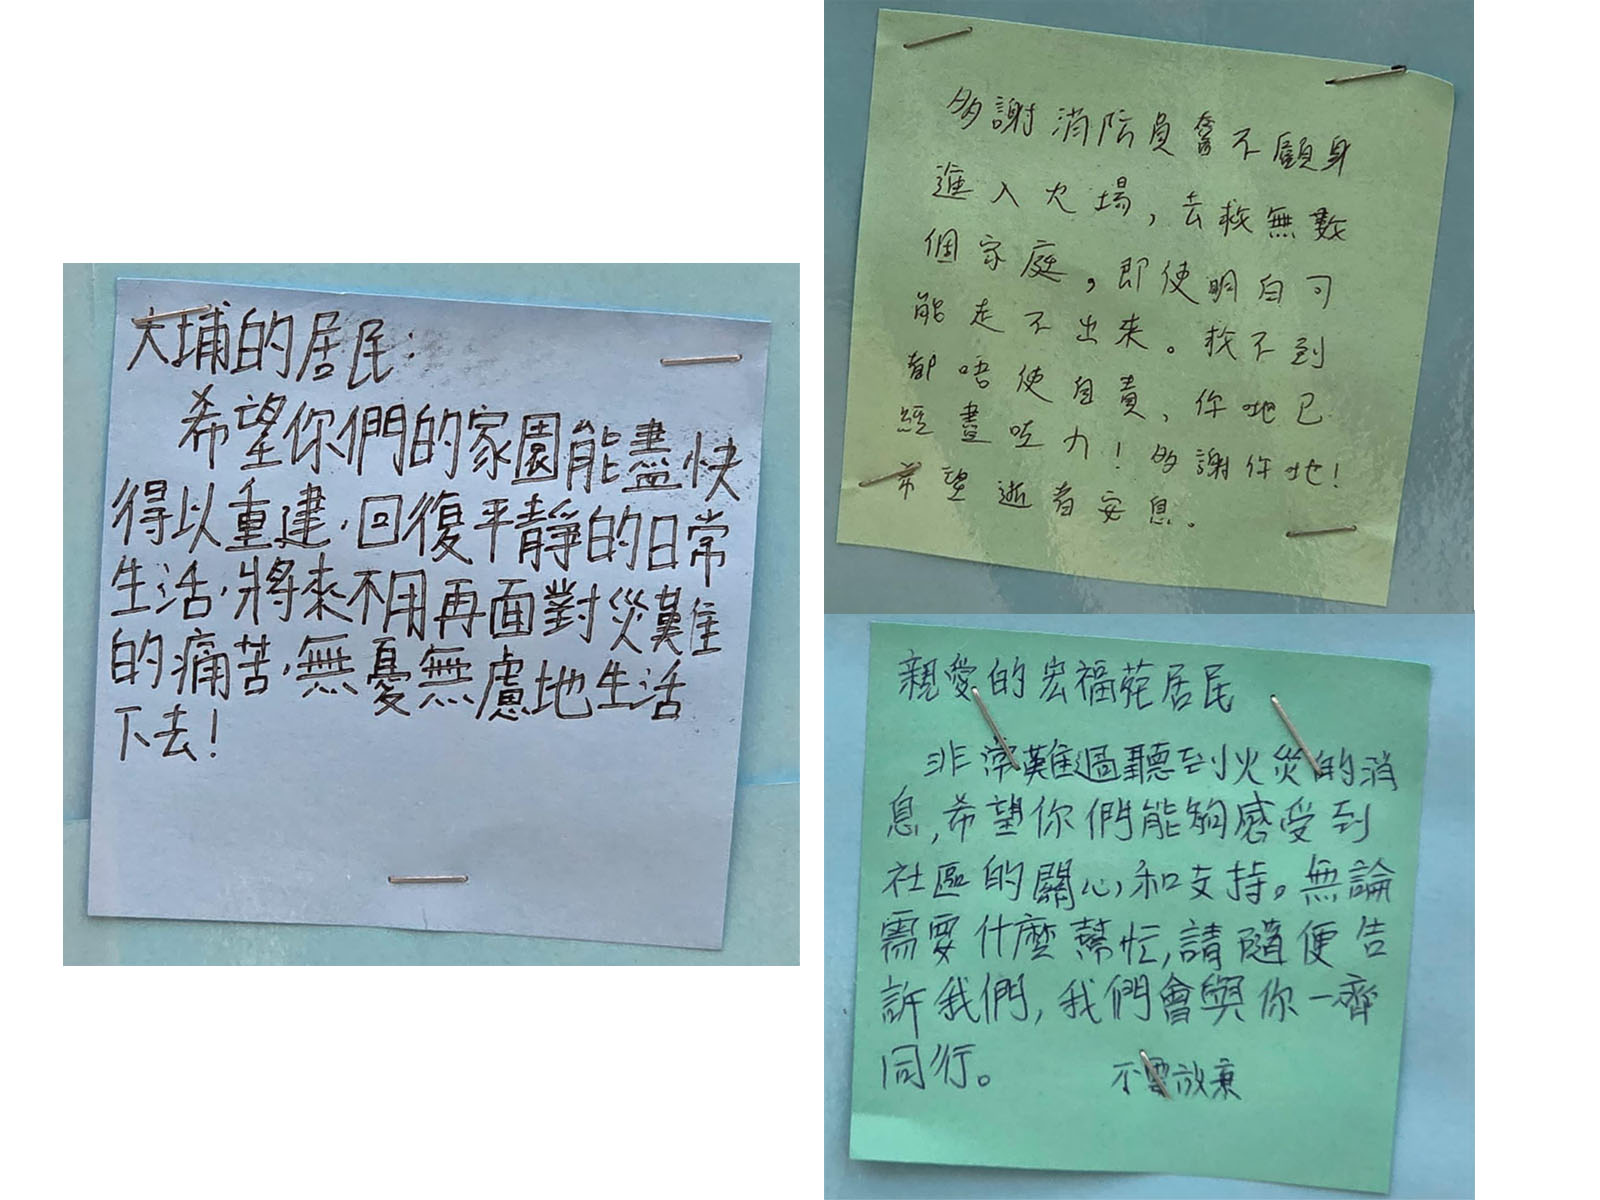 大埔的居民：
希望你們的家園能盡快
得以重建，回復平靜的日常
生活，將來不用再面對災難
的痛苦，無憂無慮地生活
下去！
多謝消防員奮不顧身
進入火場，去救無數
個家庭。即使明白可
能走不出來。救不到
都唔使自責，你哋已
經盡咗力！多謝你哋！
希望逝者安息。
親愛的宏福苑居民
非常難過聽到火災的消
息，希望你們能夠感受到
社區的關心和支持。無論
需要什麼幫忙，請隨便告
訴我們，我們會與你一齊
同行。
不要放棄